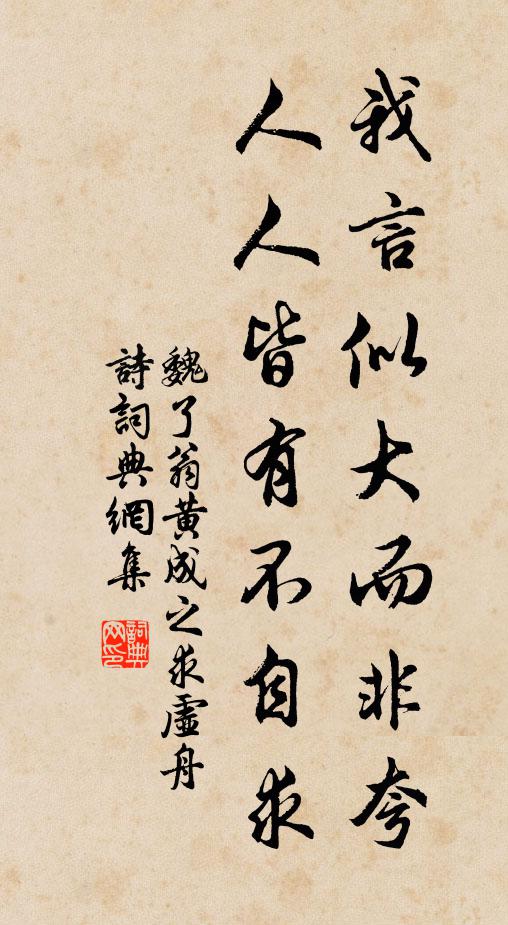 我言似大而非夸
人人皆有不自求
魏了翁黄成之求虛舟
詩詞典網集
詞典网印